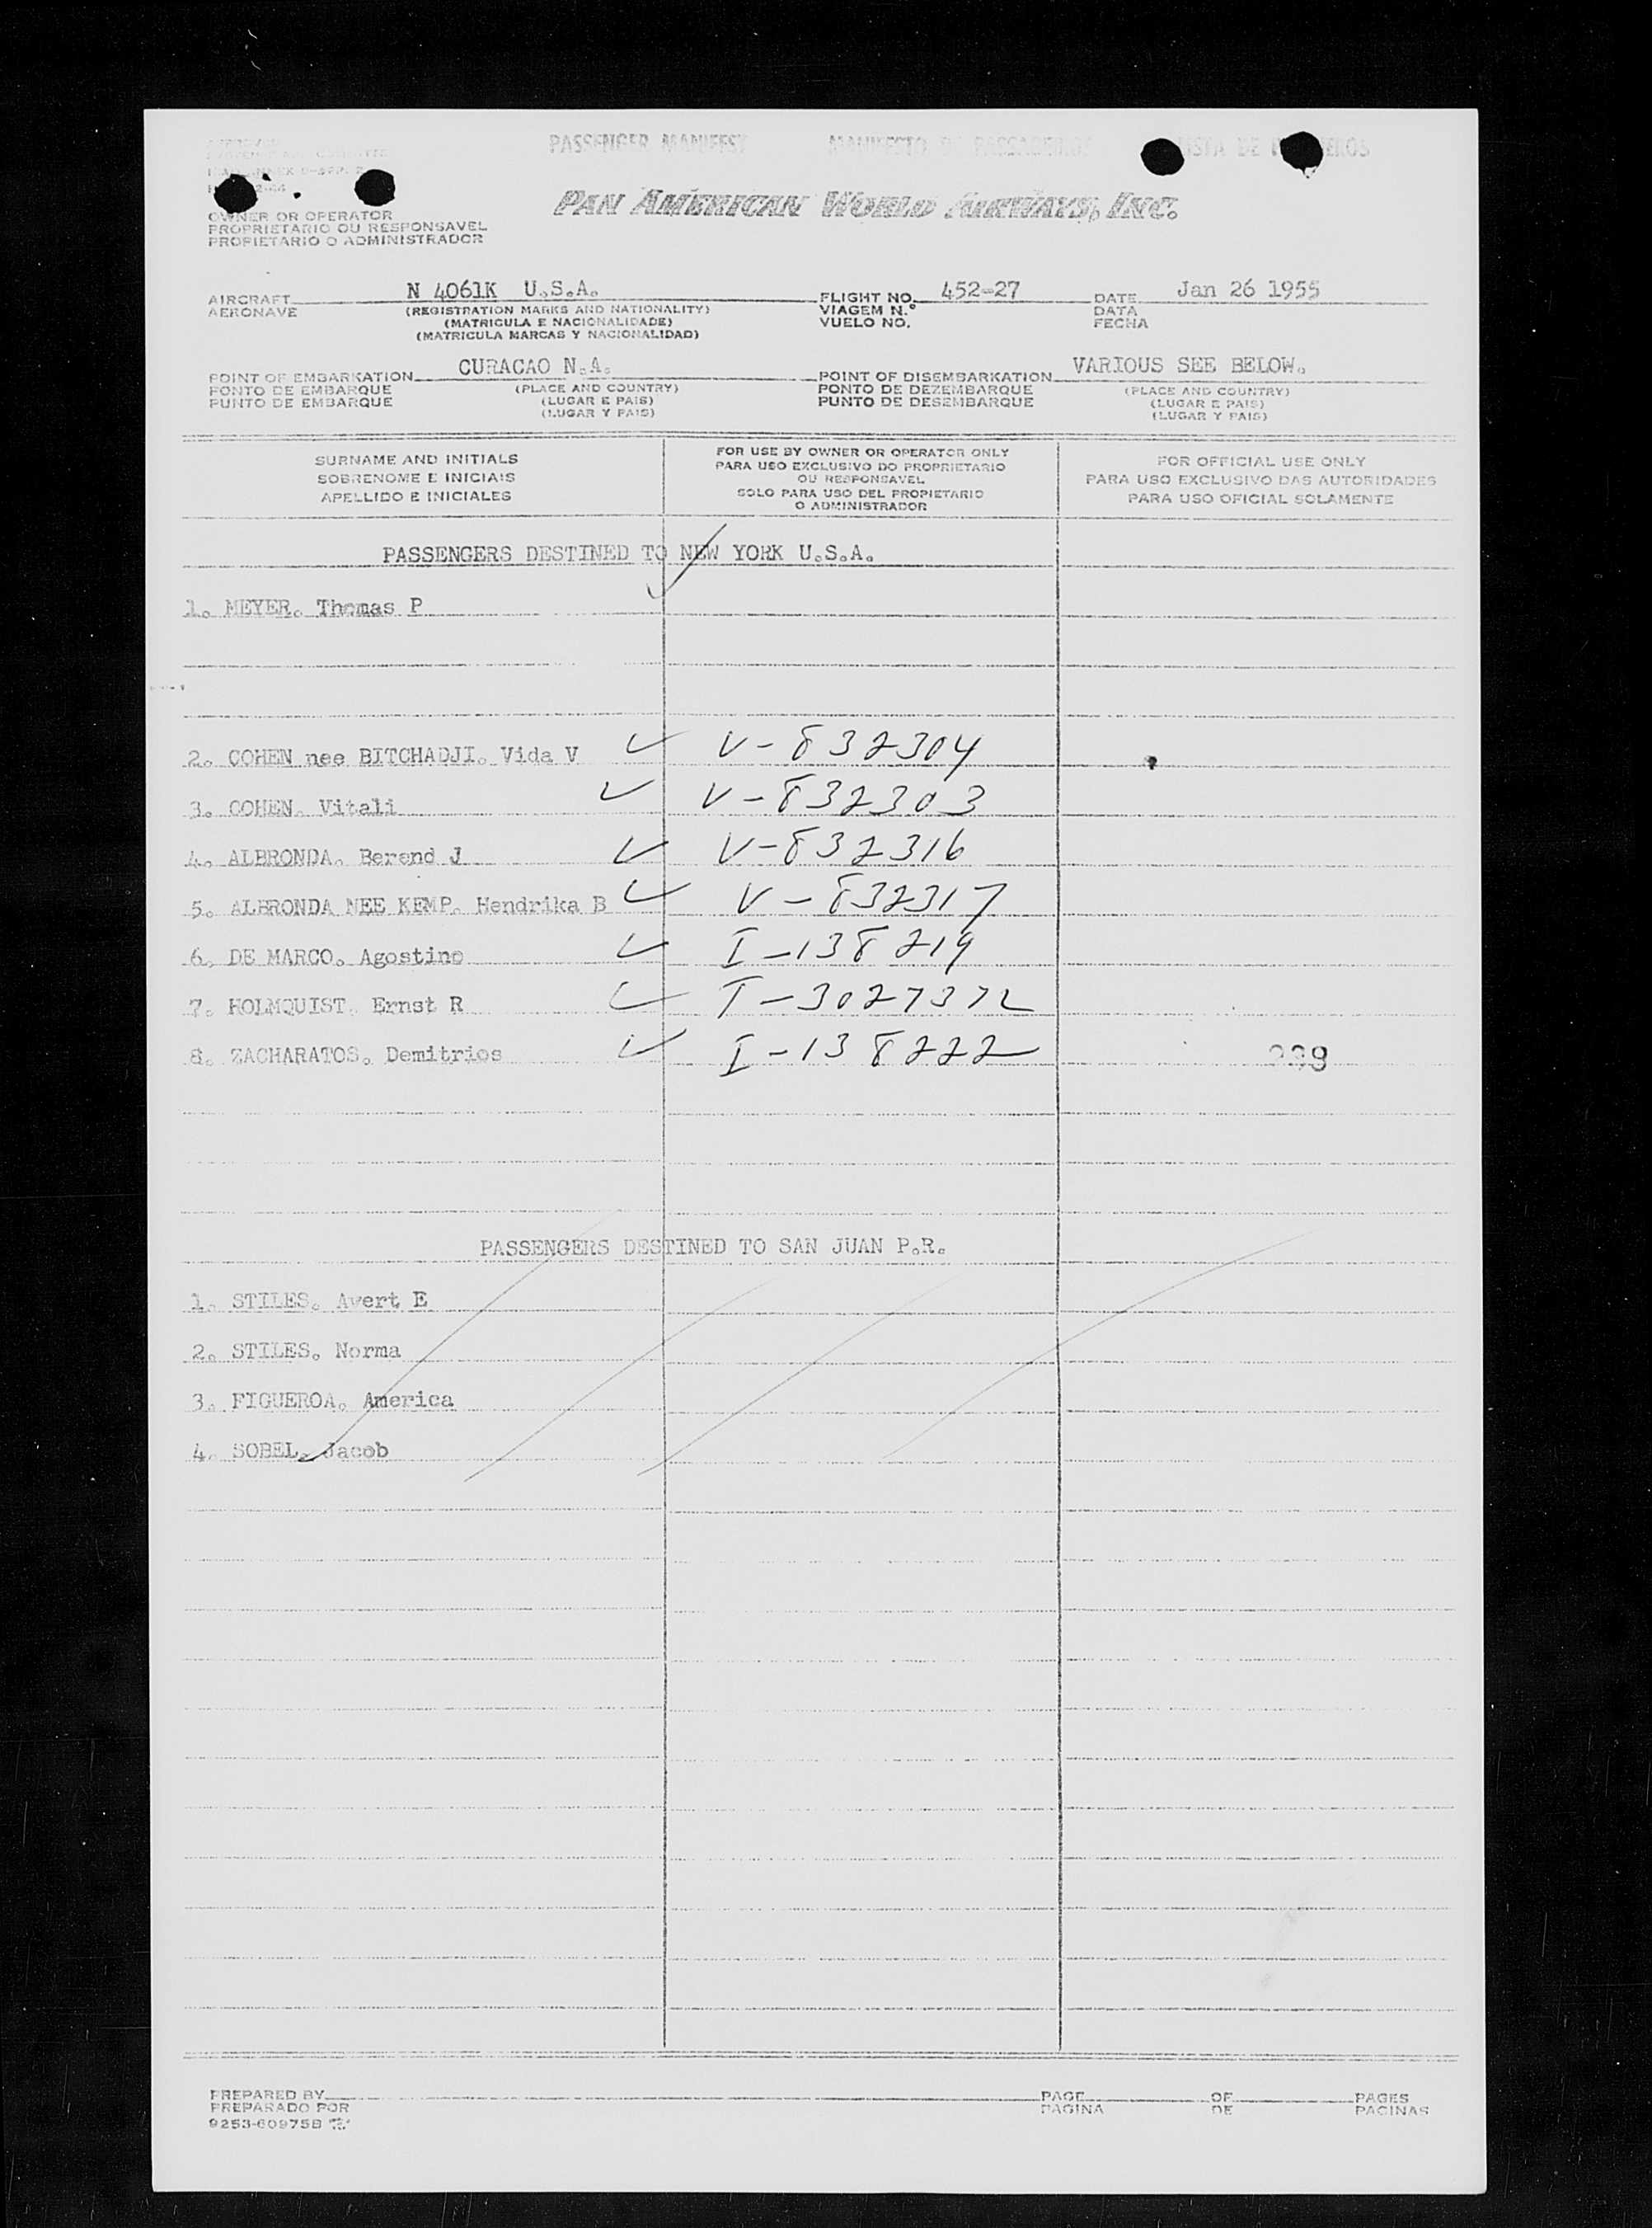 PASSENGER MANIFEST MANIFESTO DE PASSAGEIROS LISTA DE PASAJEROS
PAN AMERICAN WORLD AIRWAYS, INC.
OWNER OR OPERATOR
PROPRIETARIO OU RESPONSAVEL
PROPIETARIO O ADMINISTRADOR
AIRCRAFT N 4061K U.S.A. FLIGHT NO. 452-27 DATE Jan 26 1955
AERONAVE (REGISTRATION MARKS AND NATIONALITY) VIAGEM N.º DATA
(MATRICULA E NACIONALIDADE) VUELO NO. FECHA
(MATRICULA MARCAS Y NACIONALIDAD)
POINT OF EMBARKATION CURACAO N.A. POINT OF DISEMBARKATION VARIOUS SEE BELOW.
PONTO DE EMBARQUE (PLACE AND COUNTRY) PONTO DE DEZEMBARQUE (PLACE AND COUNTRY)
PUNTO DE EMBARQUE (LUGAR E PAIS) PUNTO DE DESEMBARQUE (LUGAR E PAIS)
(LUGAR Y PAIS) (LUGAR Y PAIS)
SURNAME AND INITIALS
SOBRENOME E INICIAIS
APELLIDO E INICIALES
FOR USE BY OWNER OR OPERATOR ONLY
PARA USO EXCLUSIVO DO PROPRIETARIO
OU RESPONSAVEL
SOLO PARA USO DEL PROPIETARIO
O ADMINISTRADOR
FOR OFFICIAL USE ONLY
PARA USO EXCLUSIVO DAS AUTORIDADES
PARA USO OFICIAL SOLAMENTE
PASSENGERS DESTINED TO NEW YORK U.S.A.
1. MEYER. Thomas P
2. COHEN nee BITCHADJI. Vida V V-832304
3. COHEN. Vitali V-832303
4. ALBRONDA. Berend J V-832316
5. ALBRONDA NEE KEMP. Hendrika B V-832317
6. DE MARCO. Agostino I-138219
7. HOLMQUIST. Ernst R T-3027372
8. ZACHARATOS. Demitrios I-138222
PASSENGERS DESTINED TO SAN JUAN P.R.
1. STILES. Avert E
2. STILES. Norma
3. FIGUEROA. America
4. SOBEL. Jacob
PREPARED BY PAGE OF PAGES
PREPARADO POR PAGINA DE PAGINAS
9253-60975B